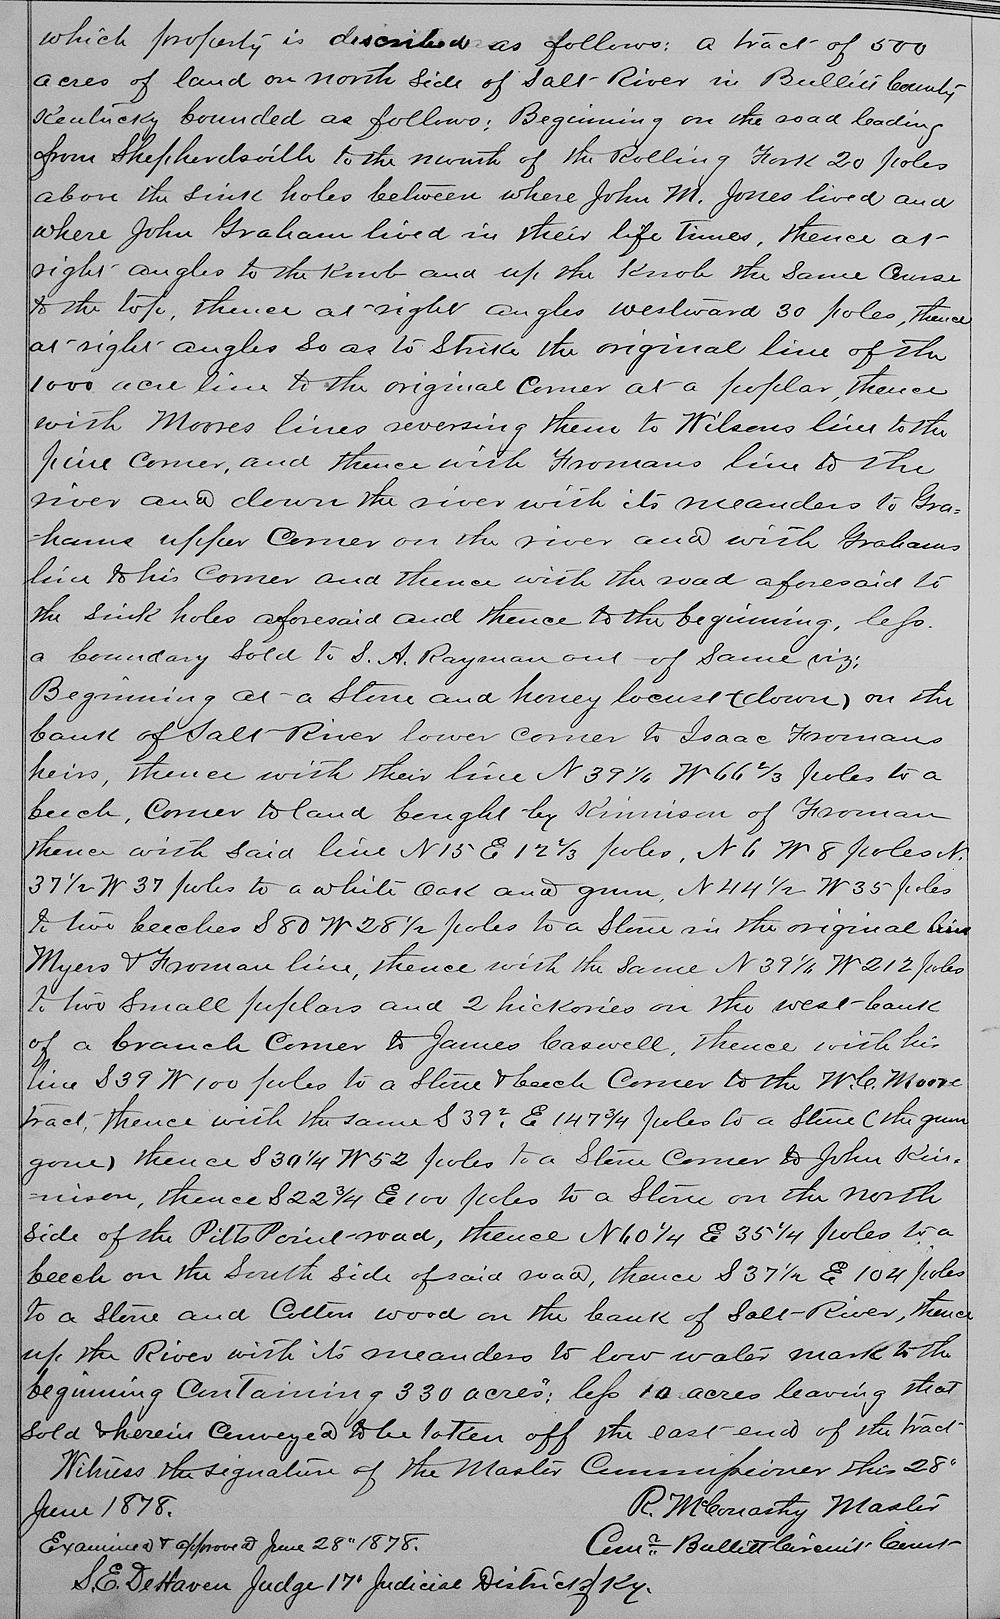 which property is described as follows: a tract of 500
acres of land on north side of Salt River in Bullitt County
Kentucky bounded as follows; Beginning on the road leading
from Shepherdsville to the mouth of the Rolling Fork 20 poles
above the sink holes between where John M. Jones lived and
where John Graham lived in their life times, thence at
right angles to the Knob and up the Knob the same Course
to the top, thence at right angles westward 30 poles, thence
at right angles so as to strike the original line of the
1000 acre line to the original Corner at a poplar, thence
with Moores lines reversing them to Wilsons line to the
pine Corner, and thence with Fromans line to the
river and down the river with its meanders to Gra=
=hams upper Corner on the river and with Grahams
line to his Corner and thence with the road aforesaid to
the sink holes aforesaid and thence to the beginning, less.
a boundary sold to S. A. Rayman out of same viz;
Beginning at a Stone and honey locust (down) on the
bank of Salt River lower corner to Isaac Fromans
heirs, thence with their line N 39 1/4 W 66 2/3 poles to a
beech, Corner to land bought by Kinnison of Froman
thence with said line N 15 E 12 2/3 poles, N 6 W 8 poles N.
37 1/2 W 37 poles to a white Oak and gum, N 44 1/2 W 35 poles
to two beeches S 80 W 28 1/2 poles to a Stone in the original line
Myers & Froman line, thence with the same N 39 1/4 W 212 poles
to two small poplars and 2 hickories on the west bank
of a branch Corner to James Caswell, thence with his
line S 39 W 100 poles to a Stone & beech Corner to the W. C. Moore
tract, thence with the same S 39 E 147 3/4 poles to a Stone (the gum
gone) thence S 30 1/4 W 52 poles to a Stone Corner to John Kin=
=nison, thence S 22 3/4 E 100 poles to a Stone on the north
side of the Pitts Point road, thence N 60 1/4 E 35 1/4 poles to a
beech on the South side of said road, thence S 37 1/2 E 104 poles
to a Stone and Cotton wood on the bank of Salt River, thence
up the River with its meanders to low water mark to the
beginning Containing 330 acres; less 10 acres leaving that
sold & herein Conveyed to be taken off the east end of the tract
Witness the signature of the Master Commissioner this 28"
June 1878. R. McConathy Master
Examined & approved June 28" 1878. Comr. Bullitt Circuit Court
S. E. DeHaven Judge 17" Judicial District of Ky.